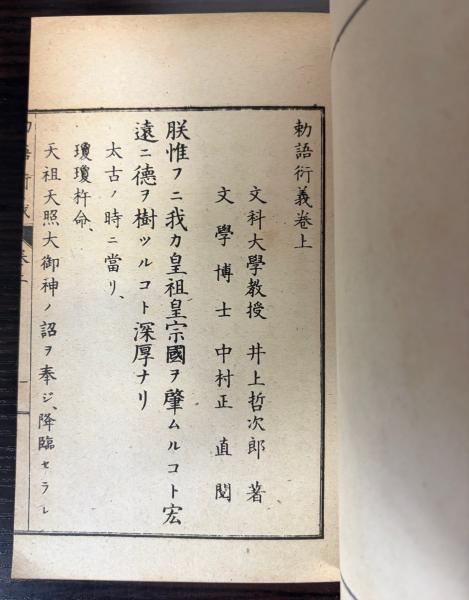 勅語衍義卷上
文科大學教授 井上哲次郎 著
文學博士 中村正直 閲
朕惟フニ我カ皇祖皇宗國ヲ肇ムルコト宏
遠ニ德ヲ樹ツルコト深厚ナリ
太古ノ時ニ當リ、
瓊瓊杵命、
天祖天照大御神ノ詔ヲ奉ジ、降臨セラレ